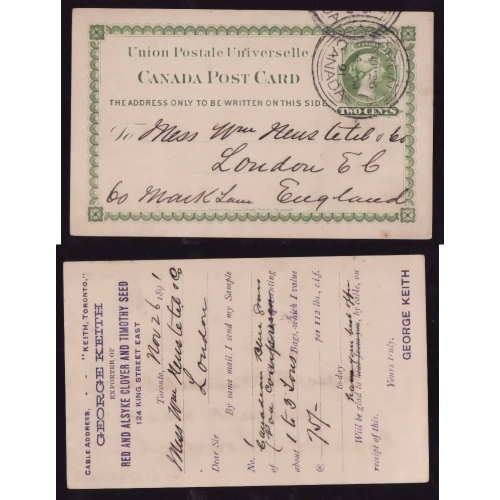 Union Postale Universelle
CANADA POST CARD
THE ADDRESS ONLY TO BE WRITTEN ON THIS SIDE
TWO CENTS
CANADA
91
To Mess Wm & Co
London E C
60 Mark Lane England
CABLE ADDRESS, - - "KEITH, TORONTO."
GEORGE KEITH
EXPORTER OF
RED AND ALSYKE CLOVER AND TIMOTHY SEED
124 KING STREET EAST
Toronto, Nov 26 1891
Mess Wm & Co
London
Dear Sir
By same mail I send my Sample
No. 1 Canadian Blue
about 1 to 3 Tons Bags, which I value
@ per 112 lbs., c.i.f.
today
Will be glad to by cable, on
receipt of this.
Yours truly,
GEORGE KEITH